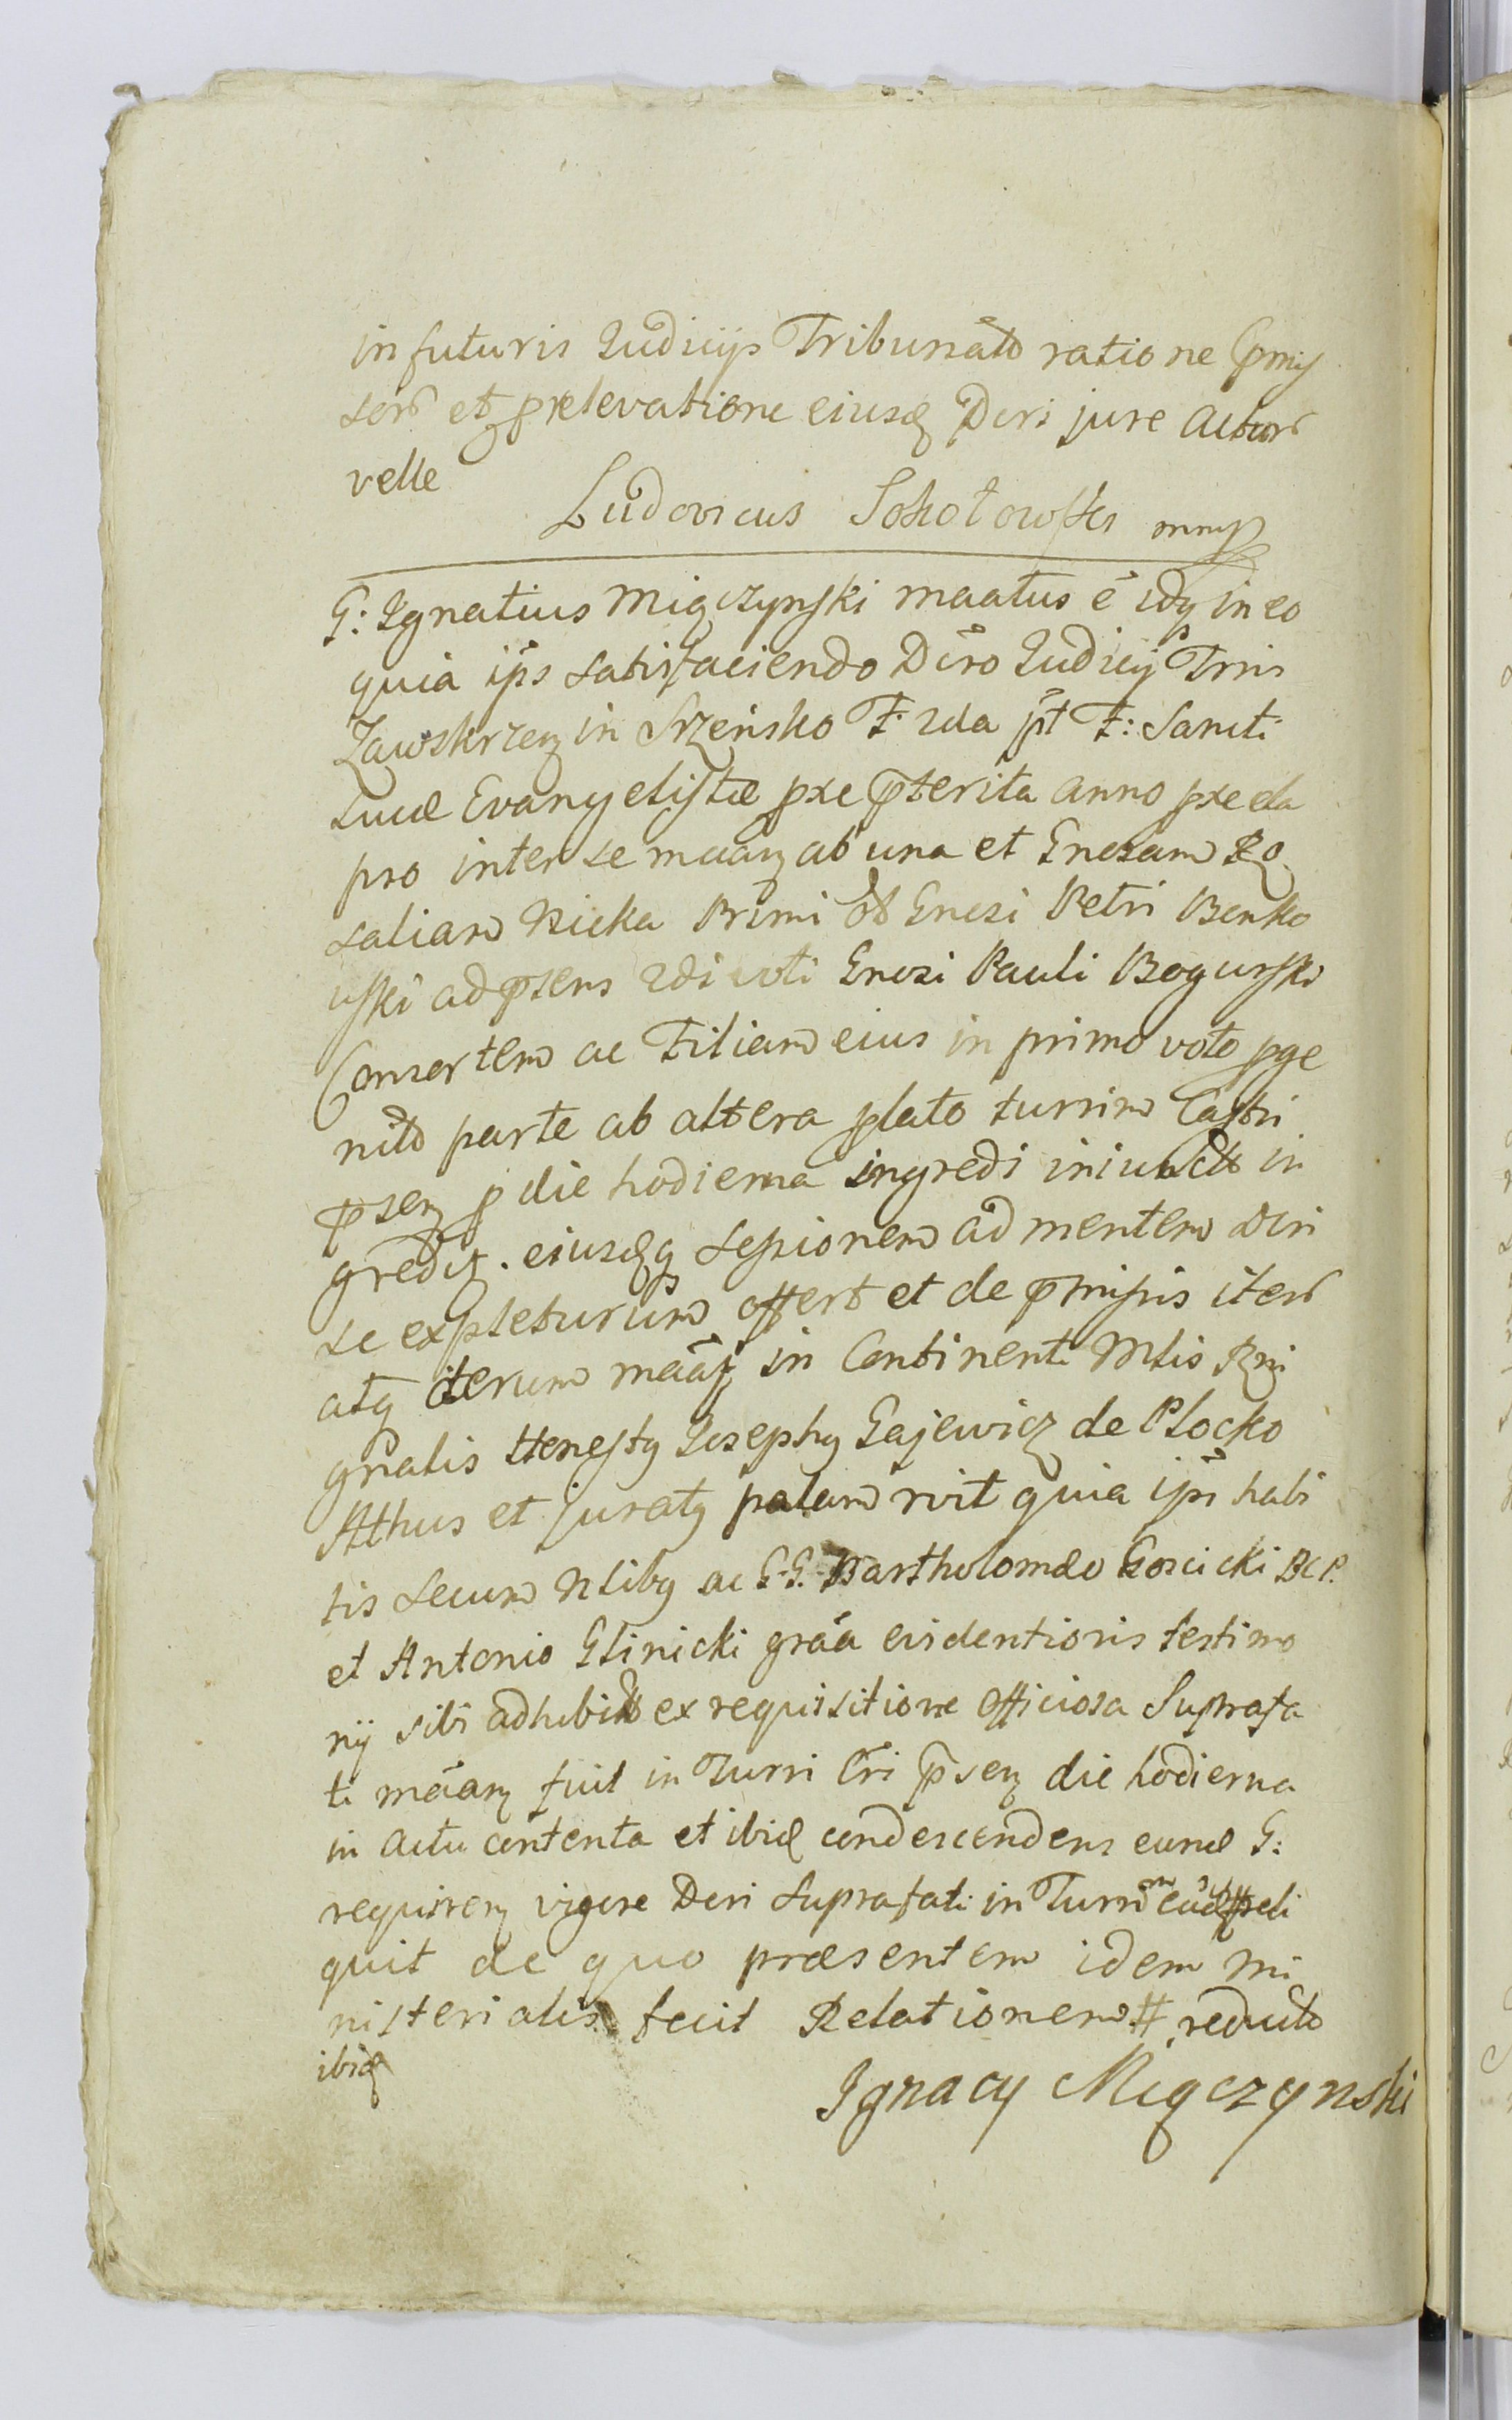 in futuris Judicijs Tribunalib ratione pmis
sor et prelevatione eiusd Dcri jure Actore
velle
Ludovicus Sokołowski mmp
G: Ignatius Miączynski maatus ē idq in eo
quia ips satisfaciendo Dcro Judicij Trris
Zawskrzen in Srzeńsko F: 2da pt F: Sancti
Lucæ Evangelistæ præ pterita anno præela
pro inter se maan ab una et Gnosam Ro
saliam Nicka Primi olt Gnosi Petri Benko
wski ad psens 2di voti Gnosi Pauli Bogurski
Consortem ac Filiam eius in primo voto pge
nita parte ab altera plato turrim Castri
psen p die hodierna ingredi iniunctt in
gredit. eiusdq sessionem ad mentem Dcri
se expleturum offert et de pmissis iter
atq iterum maan in Continenti Mlis Rni
gnalis Honestq Josephq Gajewicz de Plocko
Atthus et juratq palam rvit quia ips habi
tis secum Nlibq ac G.G. Bartholomæo Goscicki B.C.P.
et Antonio Glinicki graa evidentioris testimo
nij sibi adhibitt ex requisitione officiosa Suprafa
ti maan fuit in Turri Cri psen die hodierna
in Actu contenta et ibid condescendens eund G:
requiren vigore Dcri suprafati in Turri eād reli
quit de quo præsentem idem Mi
nisterialis fecit Relationem # reducto
ibid
Ignacy Miączynski